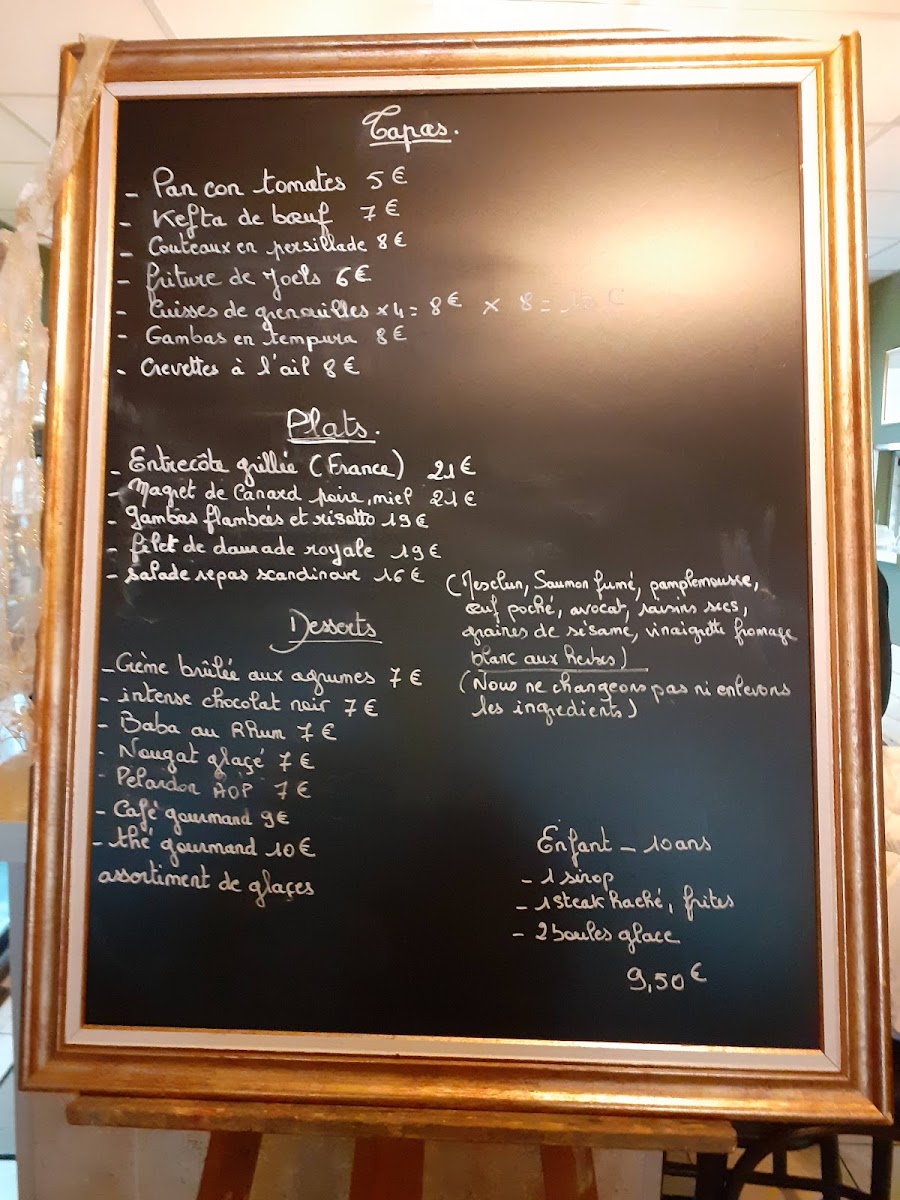 Tapas.
- Pan con tomates 5€
- Kefta de bœuf 7€
- Couteaux en persillade 8€
- friture de Joels 6€
- Cuisses de grenouilles x4 = 8€ x 8 =
- Gambas en tempura 8€
- Crevettes à l'ail 8€
Plats.
- Entrecôte grillée (France) 21€
- Magret de Canard poire, miel 21€
- gambas flambées et risotto 19€
- filet de daurade royale 19€
- Salade repas scandinave 16€
(Mesclun, Saumon fumé, pamplemousse,
œuf poché, avocat, raisins secs,
graines de sésame, vinaigrette fromage
blanc aux herbes)
(Nous ne changeons pas ni enlevons
les ingredients)
Desserts
- Crème brûlée aux agrumes 7€
- intense chocolat noir 7€
- Baba au Rhum 7€
- Nougat glaçé 7€
- Pelardon AOP 7€
- Café gourmand 9€
- thé gourmand 10€
assortiment de glaçes
Enfant - 10ans
- 1 sirop
- 1 Steak haché, frites
- 2 boules glace
9,50€